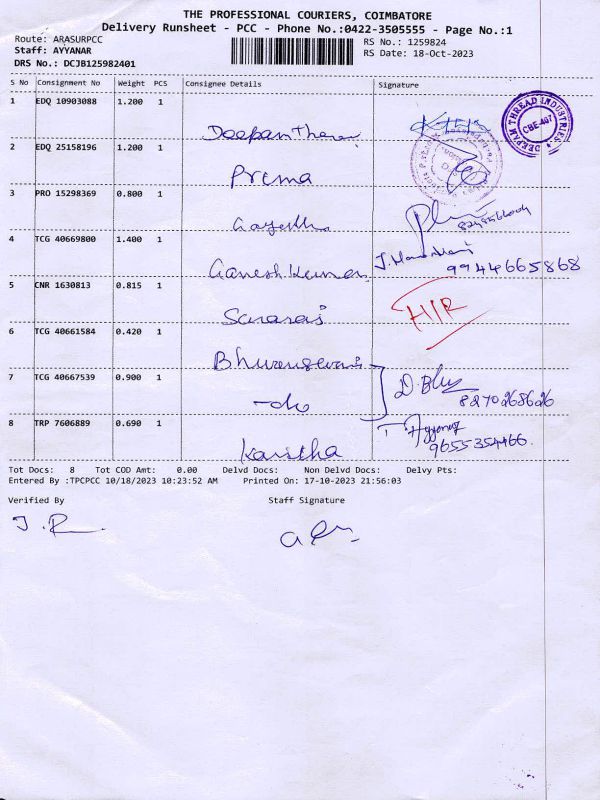 THE PROFESSIONAL COURIERS, COIMBATORE
Delivery Runsheet - PCC - Phone No.:0422-3505555 - Page No.:1
Route: ARASURPCC RS No.: 1259824
Staff: AYYANAR RS Date: 18-Oct-2023
DRS No.: DCJB125982401
S No Consignment No Weight PCS Consignee Details Signature
1 EDQ 10903088 1.200 1
DEEPAM THREAD INDUSTRIES
CBE-407
2 EDQ 25158196 1.200 1
Prema
3 PRO 15298369 0.800 1
4 TCG 40669800 1.400 1
Ganesh Kumar 9944665868
5 CNR 1630813 0.815 1
H/R
6 TCG 40661584 0.420 1
7 TCG 40667539 0.900 1
-do D. Bhu
8270268626
8 TRP 7606889 0.690 1
9655354466
Tot Docs: 8 Tot COD Amt: 0.00 Delvd Docs: Non Delvd Docs: Delvy Pts:
Entered By :TPCPCC 10/18/2023 10:23:52 AM Printed On: 17-10-2023 21:56:03
Verified By Staff Signature
J. R